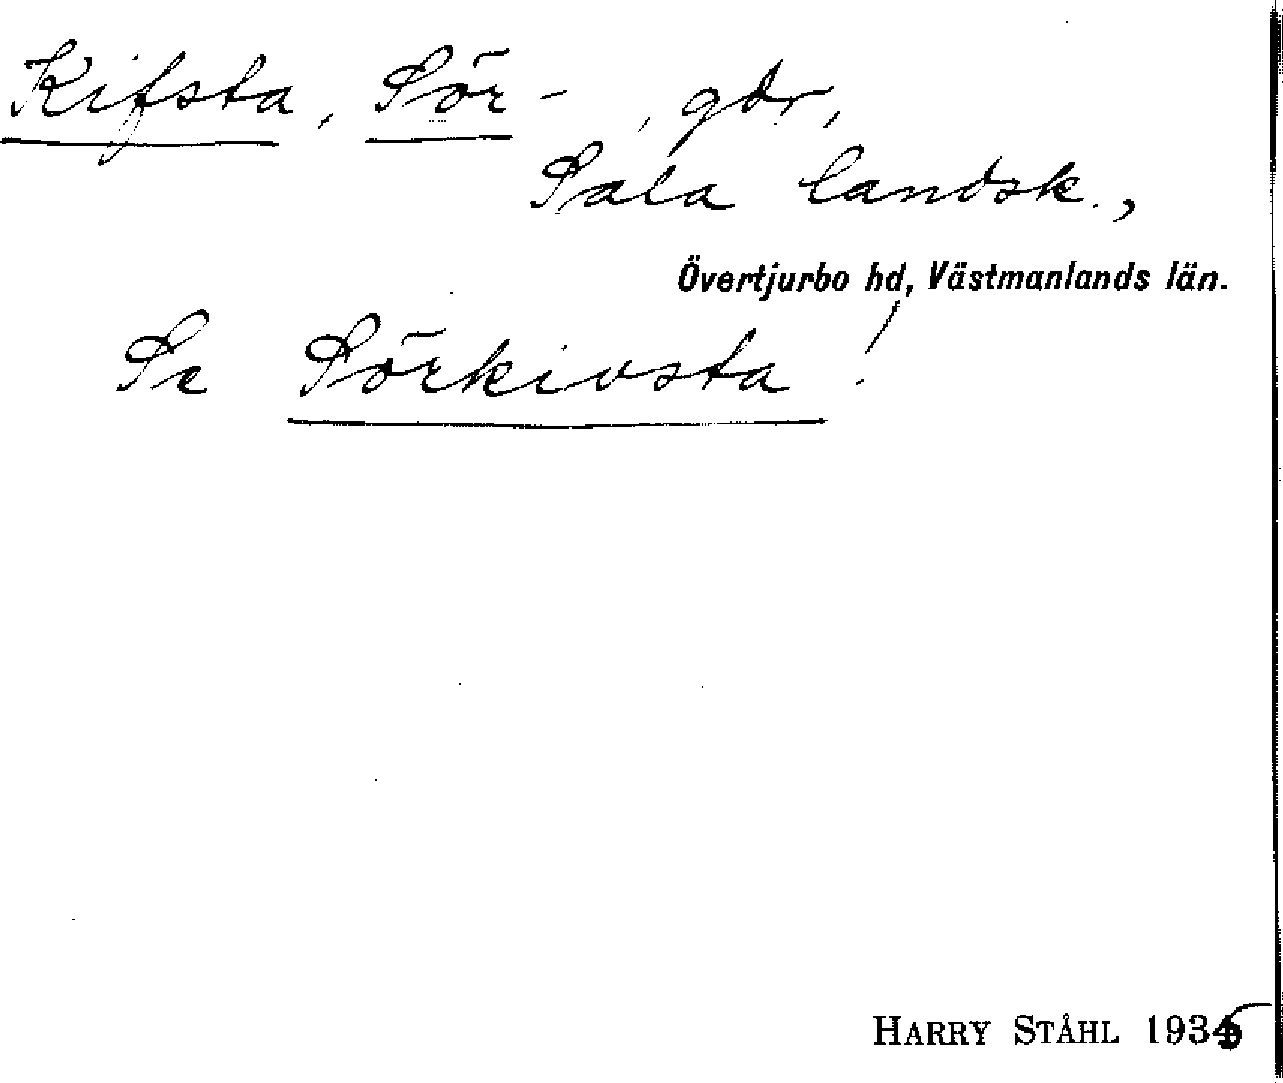 Kifsta, Sör-, gdr,
Sala landsk.,
Övertjurbo hd, Västmanlands län.
Se Sörkivsta!
HARRY STÅHL 1935